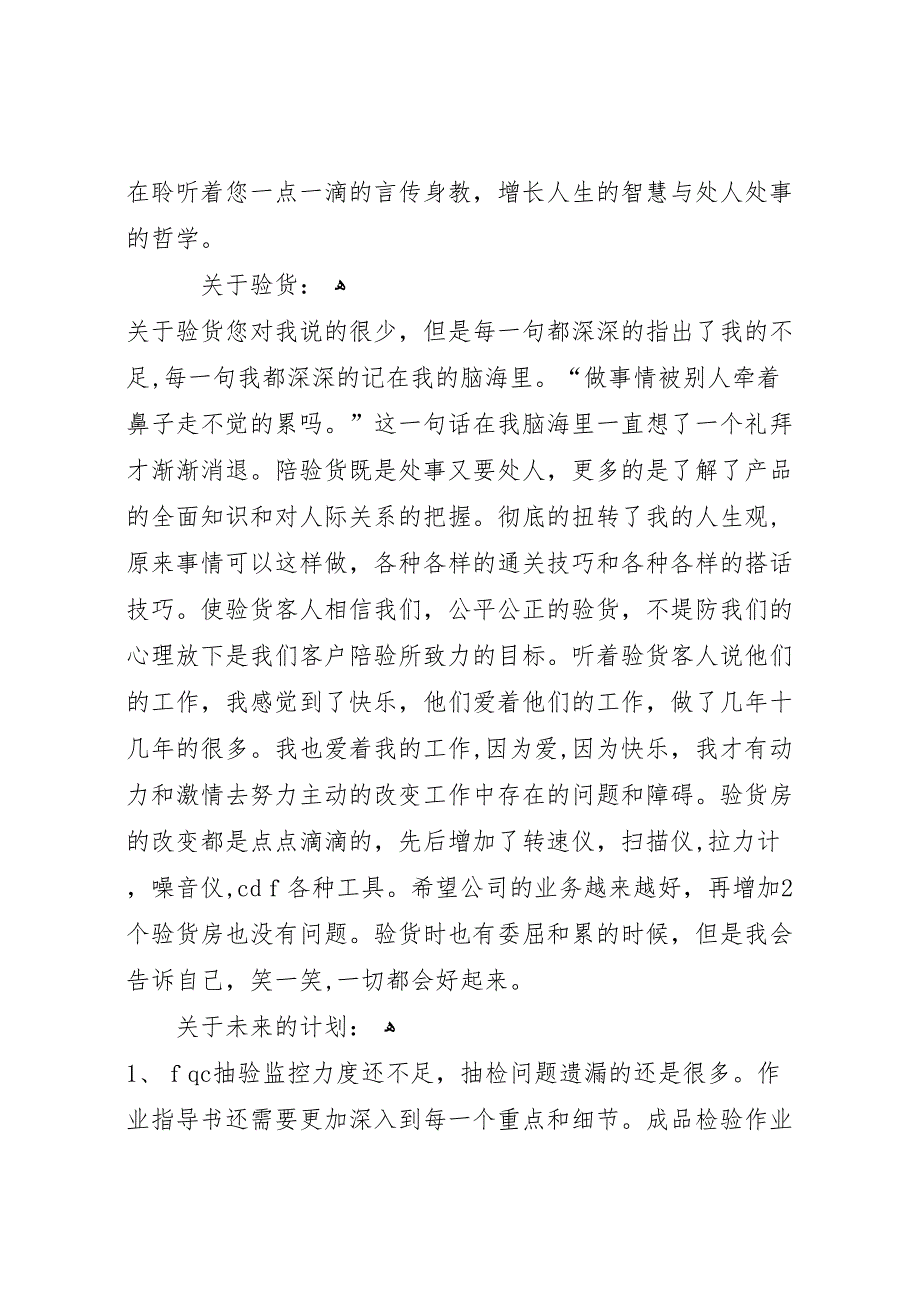 在聆听着您一点一滴的言传身教，增长人生的智慧与处人处事
的哲学。
关于验货： ﻫ
关于验货您对我说的很少，但是每一句都深深的指出了我的不
足,每一句我都深深的记在我的脑海里。“做事情被别人牵着
鼻子走不觉的累吗。”这一句话在我脑海里一直想了一个礼拜
才渐渐消退。陪验货既是处事又要处人，更多的是了解了产品
的全面知识和对人际关系的把握。彻底的扭转了我的人生观，
原来事情可以这样做，各种各样的通关技巧和各种各样的搭话
技巧。使验货客人相信我们，公平公正的验货，不堤防我们的
心理放下是我们客户陪验所致力的目标。听着验货客人说他们
的工作，我感觉到了快乐，他们爱着他们的工作，做了几年十
几年的很多。我也爱着我的工作,因为爱,因为快乐，我才有动
力和激情去努力主动的改变工作中存在的问题和障碍。验货房
的改变都是点点滴滴的，先后增加了转速仪，扫描仪,拉力计
，噪音仪,cdｆ各种工具。希望公司的业务越来越好，再增加2
个验货房也没有问题。验货时也有委屈和累的时候，但是我会
告诉自己，笑一笑,一切都会好起来。
关于未来的计划： ﻫ
1、ｆqc抽验监控力度还不足，抽检问题遗漏的还是很多。作
业指导书还需要更加深入到每一个重点和细节。成品检验作业